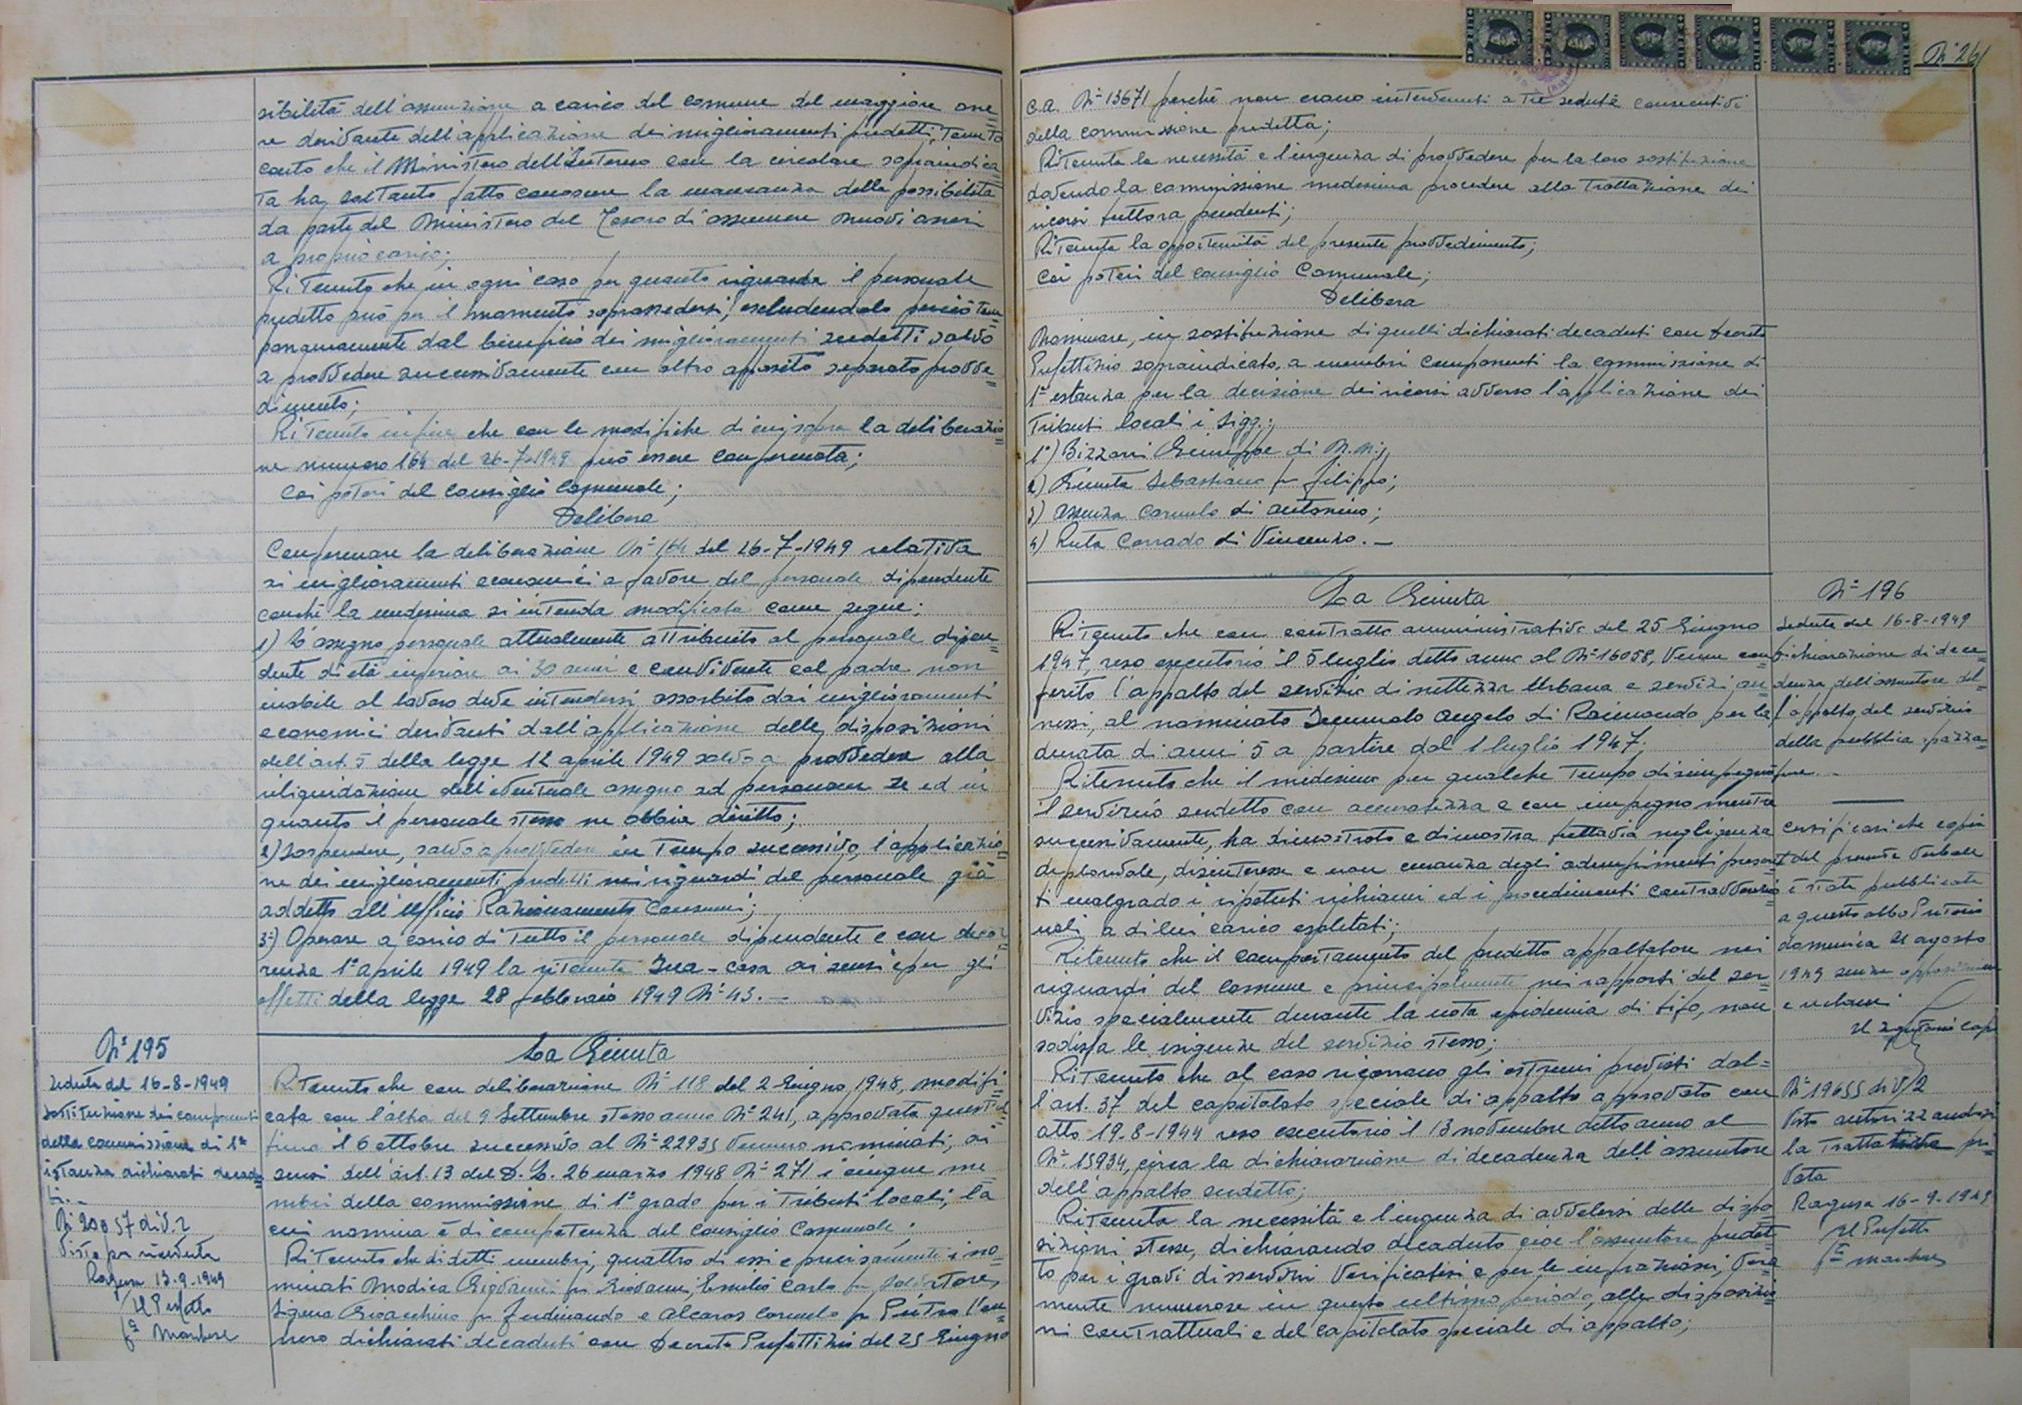 sibilità dell'assunzione a carico del comune del maggiore one=
re derivante dell'applicazione dei miglioramenti predetti, tenuto
conto che il Ministero dell'Interno con la circolare sopraindica
ta ha soltanto fatto conoscere la mancanza della possibilità
da parte del Ministero del Tesoro di assumere nuovi oneri
a proprio carico;
Ritenuto che in ogni caso per quanto riguarda il personale
predetto può per il momento soprassedersi, escludendolo perciò tem=
poraneamente dal beneficio dei miglioramenti sudetti salvo
a provvedere successivamente con altro apposito separato provve=
dimento;
Ritenuto infine che con le modifiche di cui sopra la deliberazio=
ne numero 164 del 26-7-1949 può essere confermata;
Coi poteri del Consiglio Comunale;
Delibera
Confermare la deliberazione N° 164 del 26-7-1949 relativa
ai miglioramenti economici a favore del personale dipendente
con la medesima si intenda modificata come segue:
1) L'assegno personale attualmente attribuito al personale dipen=
dente di età inferiore ai 30 anni e convivente col padre non
inabile al lavoro deve intendersi assorbito dai miglioramenti
economici derivanti dall'applicazione delle disposizioni
dell'art. 5 della legge 12 aprile 1949 salvo a provvedere alla
riliquidazione dell'eventuale assegno ad personam se ed in
quanto il personale stesso ne abbia diritto;
2) Sospendere, salvo a provvedere in tempo successivo, l'applicazio=
ne dei miglioramenti predetti nei riguardi del personale già
addetto all'Ufficio Razionamento Consumi;
3°) Operare a carico di tutto il personale dipendente e con decor=
renza 1° aprile 1949 la ritenuta Ina-casa ai sensi e per gli
effetti della legge 28 febbraio 1949 N° 43. —
N° 195
Seduta del 16-8-1949
Sostituzione dei componenti
della commissione di 1a
istanza dichiarati decadu=
ti. -
N° 20057 div. 2
Visto per ricevuta
Ragusa 13-9-1949
Il Prefetto
La Giunta
Ritenuto che con deliberazione N° 118 del 2 Giugno 1948, modifi
cata con l'altra del 9 Settembre stesso anno N° 241, approvata quest'ul=
tima il 6 ottobre successivo al N° 22935 vennero nominati, ai
sensi dell'art. 13 del D. L. 26 marzo 1948 N° 271 i cinque me
mbri della commissione di 1° grado per i Tributi locali, la
cui nomina è di competenza del Consiglio Comunale;
Ritenuto che di detti membri, quattro di essi e precisamente i no=
minati Modica Giovanni fu Giovanni, Carlo fu Salvatore,
Gioacchino fu Ferdinando e Carmelo fu Pietro ven=
nero dichiarati decaduti con Decreto Prefettizio del 25 Giugno
N° 26
c.a. N° 13671 perchè non erano intervenuti a tre sedute consecutive
della commissione predetta;
Ritenuta la necessità e l'urgenza di provvedere per la loro sostituzione
dovendo la commissione medesima procedere alla trattazione dei
ricorsi tuttora pendenti;
Ritenuta la opportunità del presente provvedimento;
Coi poteri del consiglio Comunale;
Delibera
Nominare, in sostituzione di quelli dichiarati decaduti con decreto
Prefettizio sopraindicato, a membri componenti la commissione di
1a istanza per la decisione dei ricorsi avverso l'applicazione dei
Tributi locali i Sigg.:
1°) Bizzarri Giuseppe di N.N.;
2) Giunta Sebastiano fu Filippo;
3) Assenza Carmelo di Antonino;
4) Ruta Corrado di Vincenzo. —
La Giunta
Ritenuto che con contratto amministrativo del 25 Giugno
1947, reso esecutorio il 5 luglio detto anno al N° 16058, venne con=
ferito l'appalto del servizio di nettezza Urbana e servizi an=
nessi, al nominato Angelo di Raimondo per la
durata di anni 5 a partire dal 1 luglio 1947;
Ritenuto che il medesimo per qualche tempo disimpegnò
il servizio sudetto con accuratezza e con impegno mentre
successivamente, ha dimostrato e dimostra tuttavia negligenza
deplorevole, disinteresse e non curanza degli adempimenti prescrit
ti malgrado i ripetuti richiami ed i procedimenti contravvenzio
nali a di lui carico espletati;
Ritenuto che il comportamento del predetto appaltatore nei
riguardi del comune e principalmente nei rapporti del ser
vizio specialmente durante la nota epidemia di tifo, non
sodisfa le esigenze del servizio stesso;
Ritenuto che al caso ricorrono gli estremi previsti dal=
l'art. 37 del capitolato speciale di appalto approvato con
atto 19-8-1944 reso esecutorio il 13 novembre detto anno al
N° 15934, circa la dichiarazione di decadenza dell'assuntore
dell'appalto sudetto;
Ritenuta la necessità e l'urgenza di avvalersi delle dispo
sizioni stesse, dichiarando decaduto cioè l'assuntore predet=
to per i gravi disservizi verificatisi e per le infrazioni, vera
mente numerose in questo ultimo periodo, alle disposizio=
ni contrattuali e del capitolato speciale di appalto;
N° 196
Seduta del 16-8-1949
Dichiarazione di deca=
denza dell'assuntore del=
l'appalto del servizio
della pubblica spazza=
tura. —
Certificasi che copia
del presente verbale
è stata pubblicata
a questo albo Pretorio
domenica 21 agosto
1949 senza opposizioni
e reclami
Il Segretario Capo
N° 19655 div. 2
Visto autorizzandosi
la trattativa pri
vata
Ragusa 16-9-1949
Il Prefetto